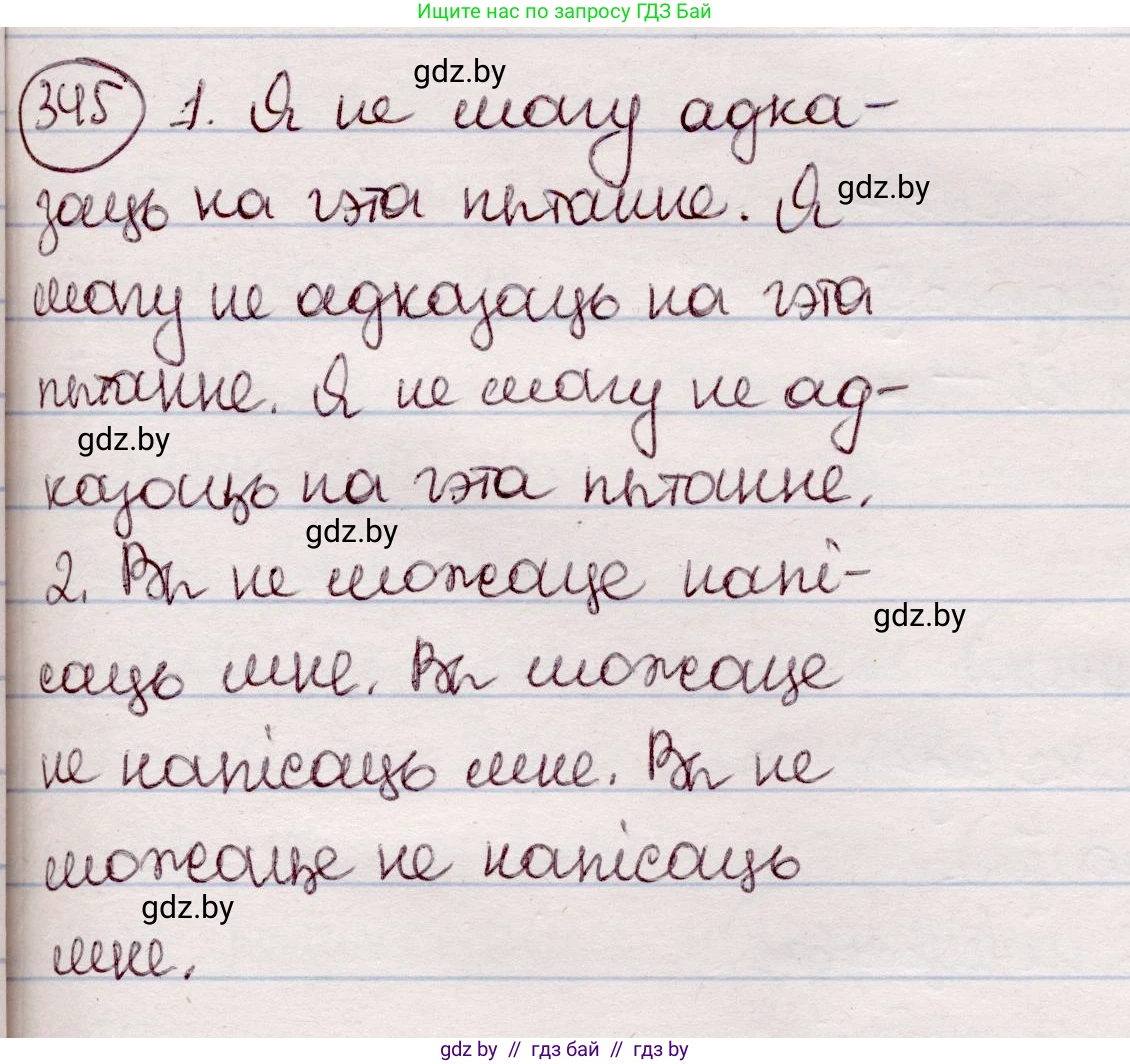 Ищите нас по запросу ГДЗ Бай
gdz.by
345 1. Я не магу адка-
заць на гэта пытанне. Я
gdz.by
магу не адказаць на гэта
пытанне. Я не магу не ад-
gdz.by
казаць на гэта пытанне.
gdz.by
2. Вы не можаце напі-
gdz.by
саць мне. Вы можаце
не напісаць мне. Вы не
можаце не напісаць
gdz.by
мне.
gdz by // гдз бай // gdz by